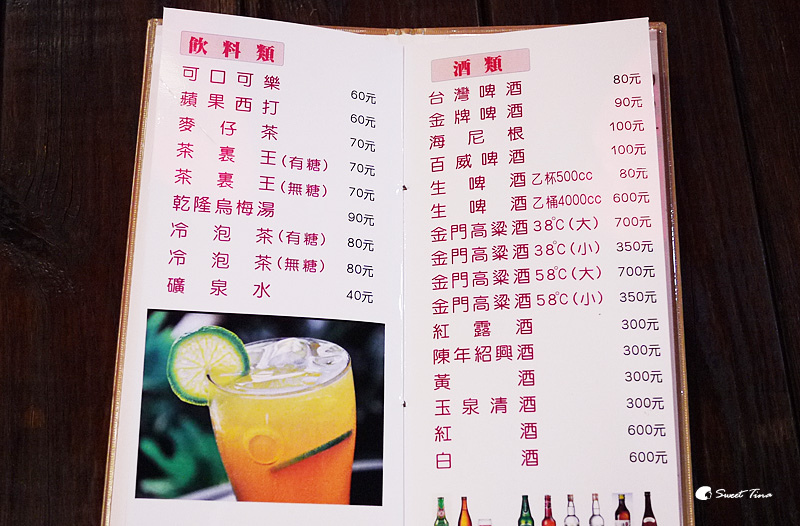 飲料類
可口可樂 60元
蘋果西打 60元
麥仔茶 70元
茶裏王(有糖) 70元
茶裏王(無糖) 70元
乾隆烏梅湯 90元
冷泡茶(有糖) 80元
冷泡茶(無糖) 80元
礦泉水 40元
酒類
台灣啤酒 80元
金牌啤酒 90元
海尼根 100元
百威啤酒 100元
生啤酒乙杯500cc 80元
生啤酒乙桶4000cc 600元
金門高粱酒38℃(大) 700元
金門高粱酒38℃(小) 350元
金門高粱酒58℃(大) 700元
金門高粱酒58℃(小) 350元
紅露酒 300元
陳年紹興酒 300元
黃酒 300元
玉泉清酒 300元
紅酒 600元
白酒 600元
Sweet Tina